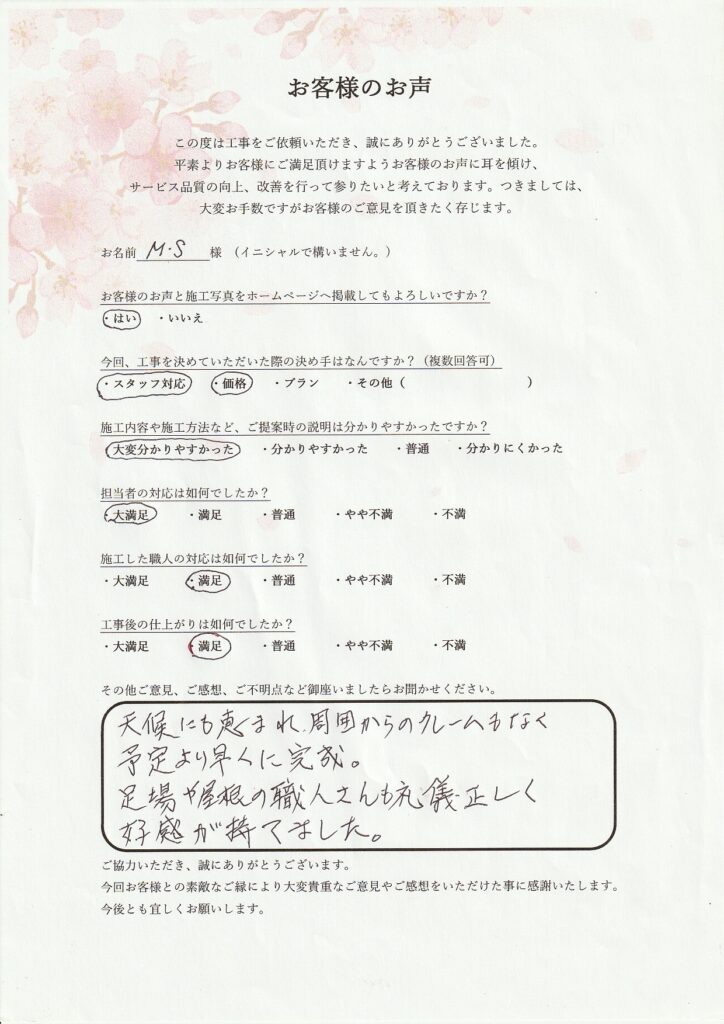 お客様のお声
この度は工事をご依頼いただき、誠にありがとうございました。
平素よりお客様にご満足頂けますようお客様のお声に耳を傾け、
サービス品質の向上、改善を行って参りたいと考えております。つきましては、
大変お手数ですがお客様のご意見を頂きたく存じます。
お名前 M・S 様 （イニシャルで構いません。）
お客様のお声と施工写真をホームページへ掲載してもよろしいですか？
・はい ・いいえ
今回、工事を決めていただいた際の決め手はなんですか？（複数回答可）
・スタッフ対応 ・価格 ・プラン ・その他（ ）
施工内容や施工方法など、ご提案時の説明は分かりやすかったですか？
・大変分かりやすかった ・分かりやすかった ・普通 ・分かりにくかった
担当者の対応は如何でしたか？
・大満足 ・満足 ・普通 ・やや不満 ・不満
施工した職人の対応は如何でしたか？
・大満足 ・満足 ・普通 ・やや不満 ・不満
工事後の仕上がりは如何でしたか？
・大満足 ・満足 ・普通 ・やや不満 ・不満
その他ご意見、ご感想、ご不明点など御座いましたらお聞かせください。
天候にも恵まれ、周囲からのクレームもなく
予定より早くに完成。
足場や屋根の職人さんも礼儀正しく
好感が持てました。
ご協力いただき、誠にありがとうございます。
今回お客様との素敵なご縁により大変貴重なご意見やご感想をいただけた事に感謝いたします。
今後とも宜しくお願いします。